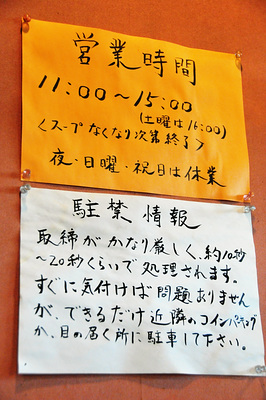 営業時間
11:00〜15:00
(土曜は16:00)
〈スープなくなり次第終了〉
夜・日曜・祝日は休業
駐禁情報
取締がかなり厳しく、約10秒
〜20秒くらいで処理されます。
すぐに気付けば問題ありません
が、できるだけ近隣のコインパーキング
か、目の届く所に駐車して下さい。